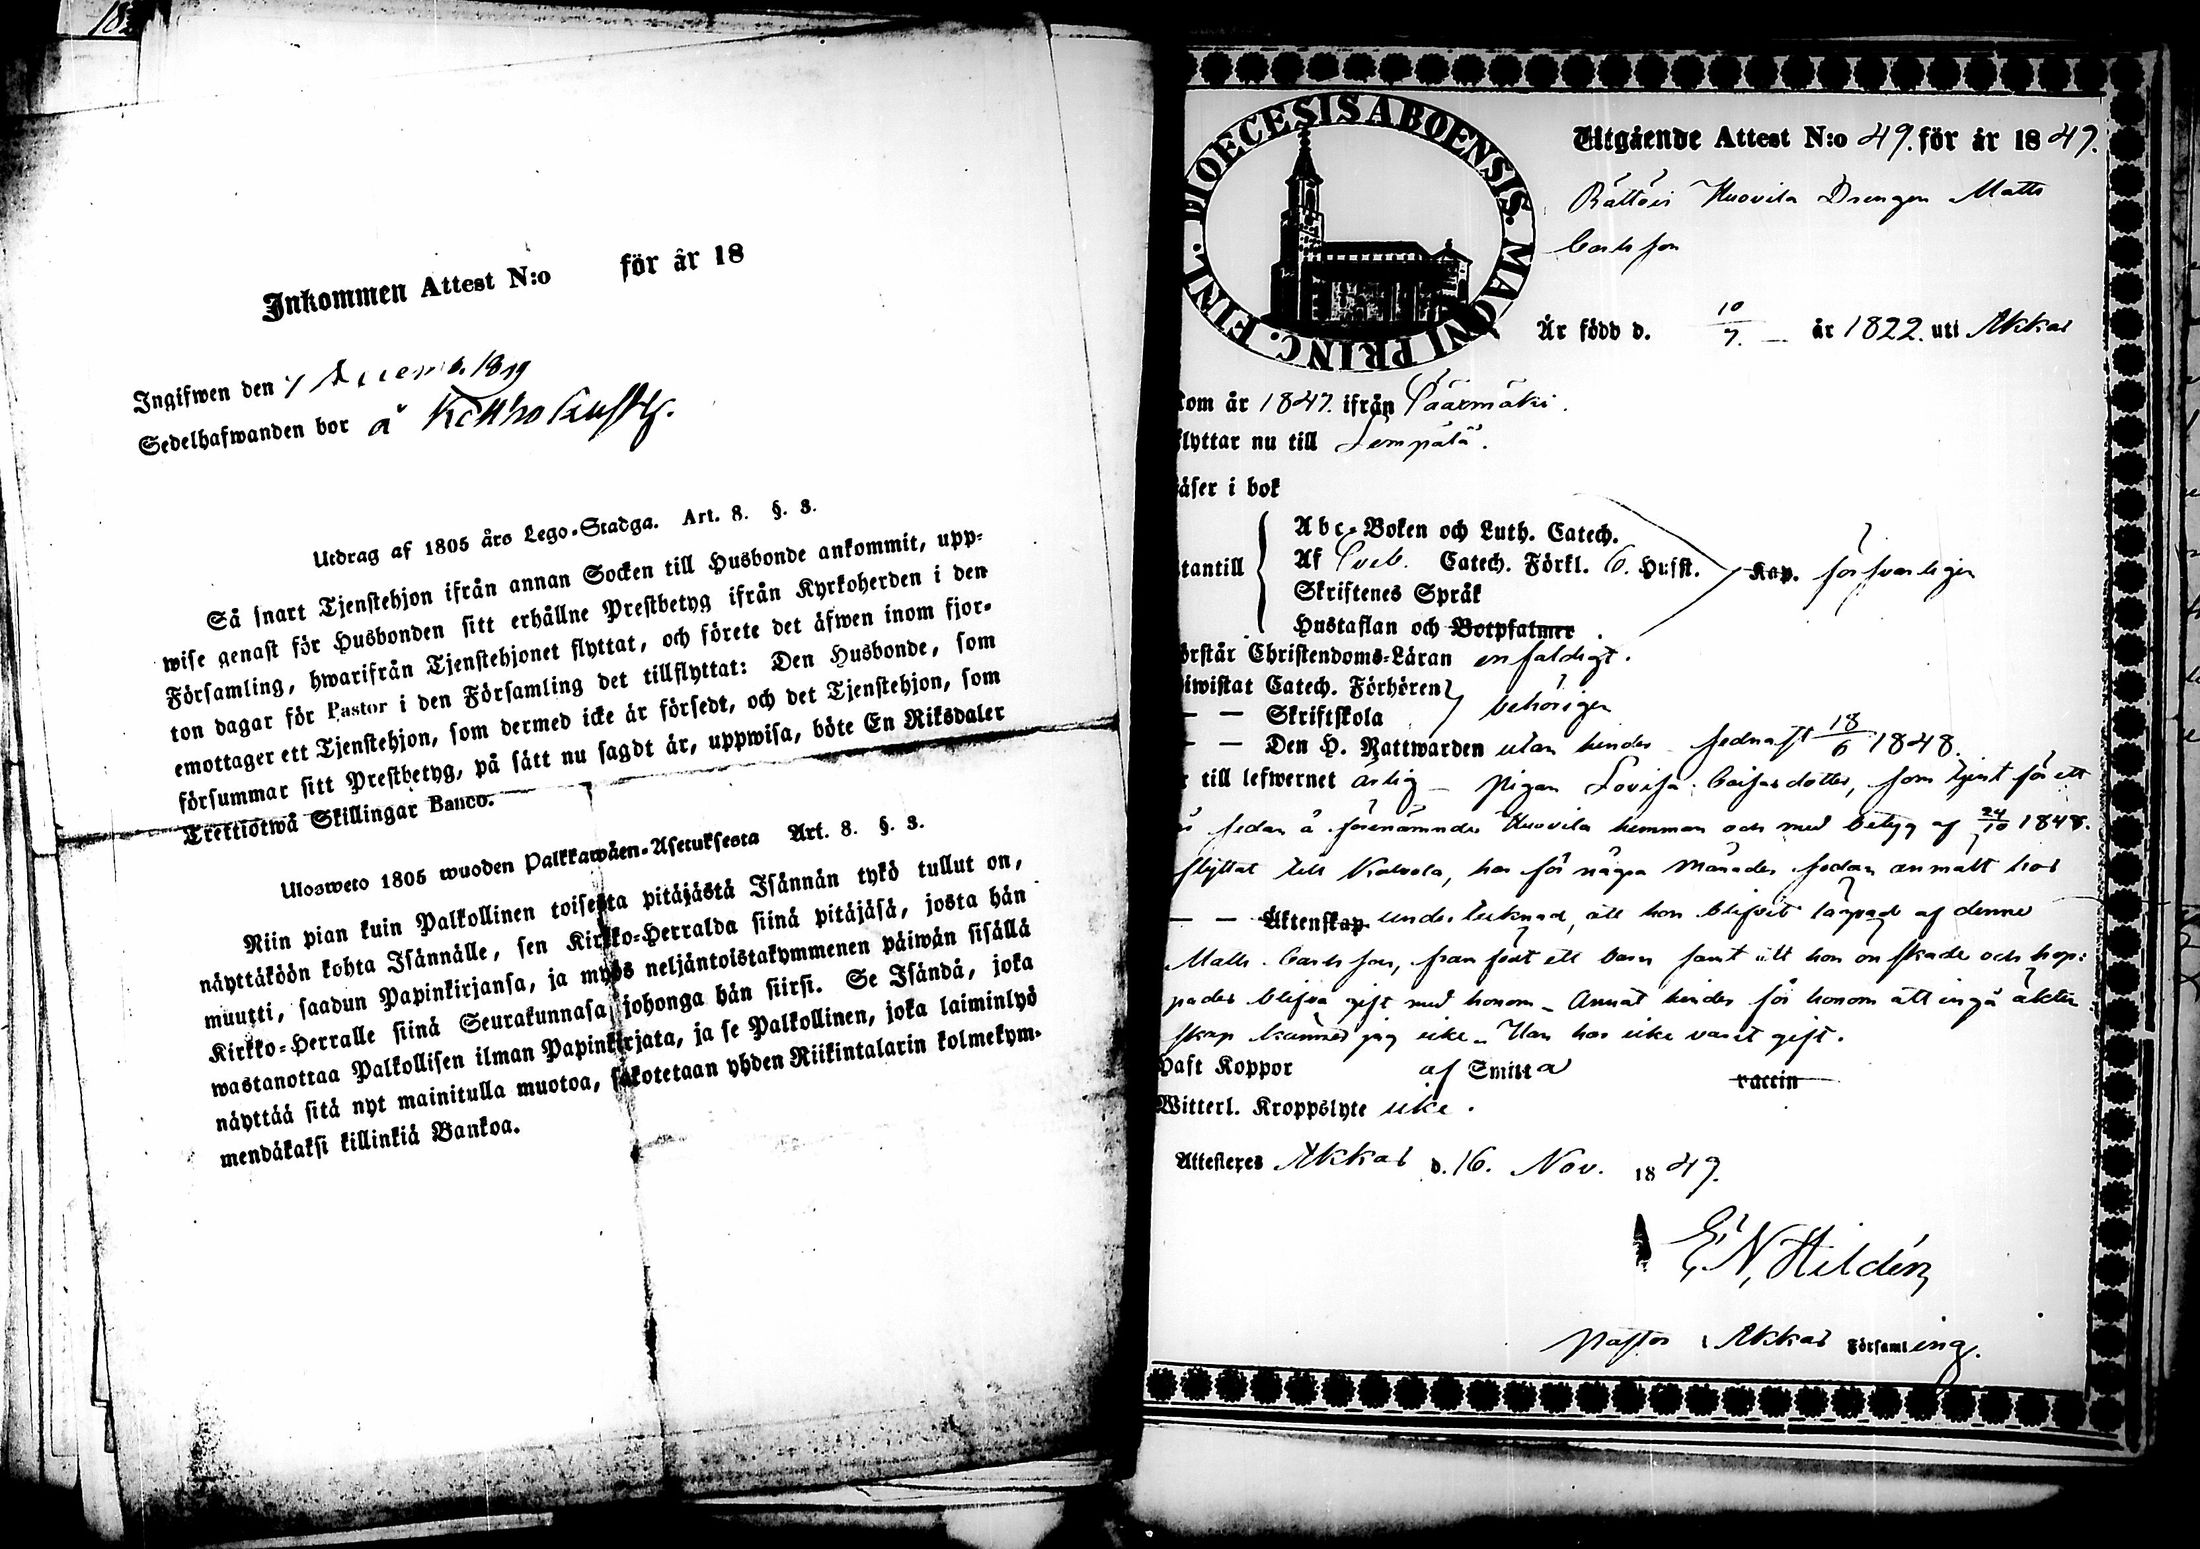 182
Inkommen Attest N:o för år 18
Ingifwen den 7 1849
Sedelhafwanden bor å
Utdrag af 1805 års Lego-Stadga. Art. 8. §. 3.
Så snart Tjenstehjon ifrån annan Socken till Husbonde ankommit, upp-
wise genast för Husbonden sitt erhållne Prestbetyg ifrån Kyrkoherden i den
Församling, hwarifrån Tjenstehjonet flyttat, och förete det äfwen inom fjor-
ton dagar för Pastor i den Församling det tillflyttat: Den Husbonde, som
emottager ett Tjenstehjon, som dermed icke är försedt, och det Tjenstehjon, som
försummar sitt Prestbetyg, på sätt nu sagdt är, uppwisa, böte En Riksdaler
Trettiotwå Skillingar Banco.
Ulosweto 1805 wuoden Palkkawäen-Asetuksesta Art. 8. §. 3.
Niin pian kuin Palkollinen toisesta pitäjästä Isännän tykö tullut on,
näyttäköön kohta Isännälle, sen Kirkko-Herralda siinä pitäjäsä, josta hän
muutti, saadun Papinkirjansa, ja myös neljäntoistakymmenen päiwän sisällä
Kirkko-Herralle siinä Seurakunnasa johonga hän siirsi. Se Isändä, joka
wastanottaa Palkollisen ilman Papinkirjata, ja se Palkollinen, joka laiminlyö
näyttää sitä nyt mainitulla muotoa, sakotetaan yhden Riikintalarin kolmekym-
mendäkaksi killinkiä Bankoa.
DIOECESIS ABOENSIS. MAGNI PRINC. FINL.
Utgående Attest N:o 49. för år 1849.
Huovila Drengen Matts
Carlsson
Är född d. 10/7. år 1822. uti Akkas
kom år 1847. ifrån Säaxmäki.
flyttar nu till Lempälä.
läser i bok
utantill Abc-Boken och Luth. Catech.
Af Sveb. Catech. Förkl. 6. Hufst. Kap. försvarligen
Skriftenes Språk
Hustaflan och Botpsalmer
förstår Christendoms-Läran enfaldigt.
biwistat Catech. Förhören behörigen
— — Skriftskola
— — Den H. Nattwarden utan hinder sednast 18/6 1848.
är till lefwernet ärlig — Pigan Lovisa Caisasdotter, som tjent för ett
år sedan å förenämnde Huovila hemman och med betyg af 24/10 1848.
flyttat till Kalvola, har för några Månader sedan anmält hos
— — Äktenskap undertecknad, att hon blifvit lägrad af denne
Matts Carlsson, framfödt ett barn samt att hon önskade och hop-
pades blifva gift med honom — Annat hinder för honom att ingå äkten
skap känner jag icke — Han har icke varit gift.
haft Koppor af Smitta vaccin
Witterl. Kroppslyte icke.
Attesteres Akkas d. 16. Nov. 1849.
E. N. Hildén
Pastor i Akkas Församling.